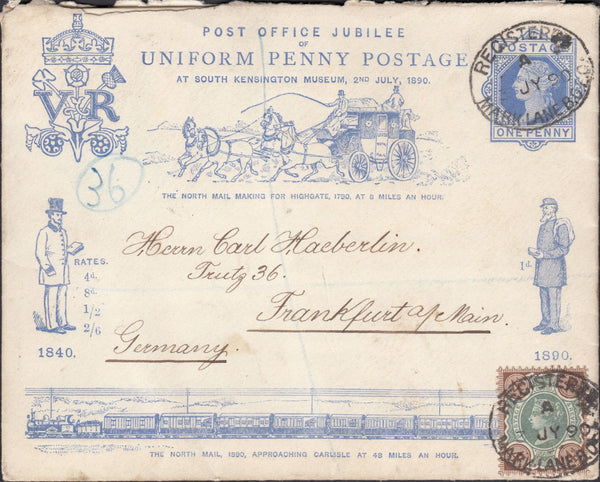 POST OFFICE JUBILEE
OF
UNIFORM PENNY POSTAGE
AT SOUTH KENSINGTON MUSEUM, 2ND JULY, 1890.
V R
POSTAGE
ONE PENNY
REGISTERED
A
JY 90
MARK LANE B.O.
36
THE NORTH MAIL MAKING FOR HIGHGATE, 1790, AT 8 MILES AN HOUR.
Herrn Carl Haeberlin.
Trutz 36.
Frankfurt a/Main.
Germany.
RATES.
4d.
8d.
1/2
2/6
1d.
1840.
1890.
REGISTERED
A
JY 90
MARK LANE B.O.
THE NORTH MAIL, 1890, APPROACHING CARLISLE AT 48 MILES AN HOUR.